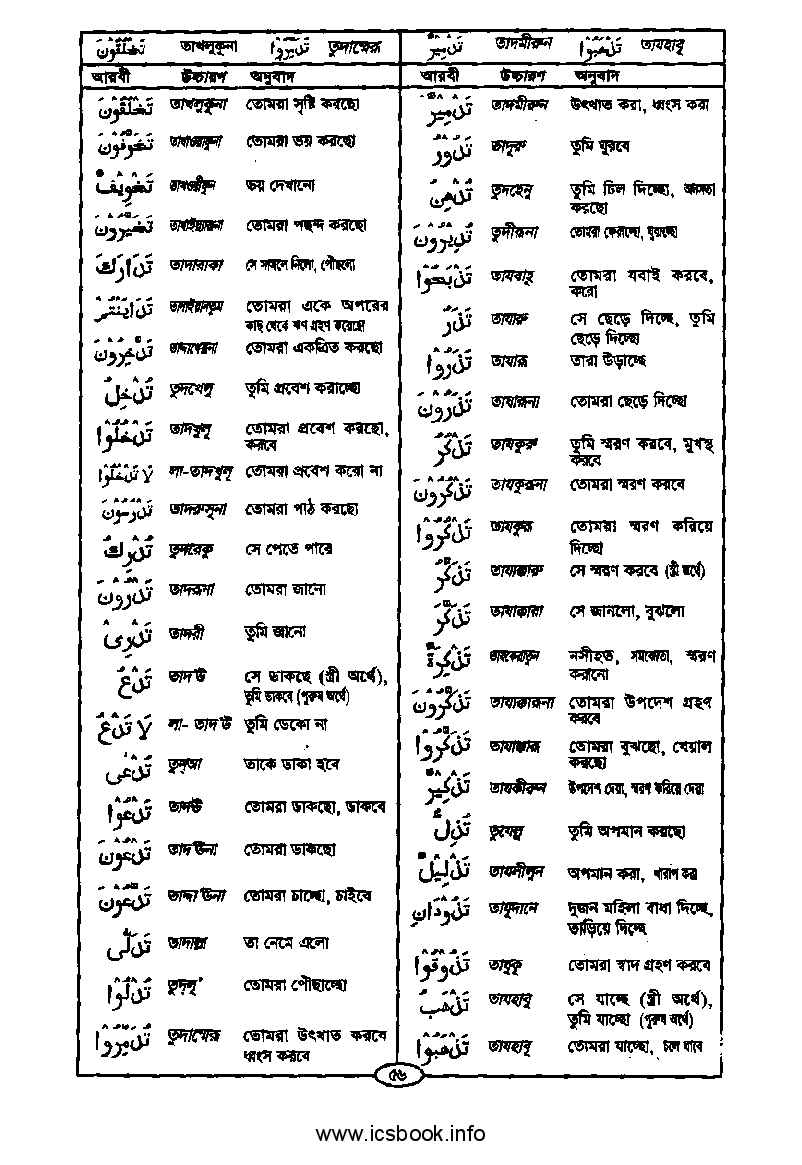 تَخْلُقُوْنَ তাখলুকুনা تُدَمِّرُوْا তুদাম্মেরু
আরবী উচ্চারণ অনুবাদ
تَخْلُقُوْنَ তাখলুকুনা তোমরা সৃষ্টি করছো
تَخَوَّفُوْنَ তোমরা ভয় করছো
تَخْوِيْفٌ ভয় দেখানো
تَخَيَّرُوْنَ তোমরা পছন্দ করছো
تَدَارَكَ তাদারাকা সে সামলে নিলো, পৌঁছলো
تَدَايَنْتُمْ তোমরা একে অপরের
কাছ থেকে ঋণ গ্রহণ করেছো
تَدَّخِرُوْنَ তোমরা একত্রিত করছো
تُدْخِلُ তুদখেলু তুমি প্রবেশ করাচ্ছো
تَدْخُلُوْا তাদখুলূ তোমরা প্রবেশ করছো,
করবে
لَا تَدْخُلُوْا লা-তাদখুলূ তোমরা প্রবেশ করো না
تَدْرُسُوْنَ তাদরুসূনা তোমরা পাঠ করছো
تُدْرِكُ তুদরেকু সে পেতে পারে
تَدْرُوْنَ তাদরূনা তোমরা জানো
تَدْرِىْ তাদরী তুমি জানো
تَدْعُ তাদ'উ সে ডাকছে (স্ত্রী অর্থে),
তুমি ডাকবে (পুরুষ অর্থে)
لَا تَدْعُ লা- তাদ'উ তুমি ডেকো না
تُدْعٰى তুদআ তাকে ডাকা হবে
تَدْعُوْا তাদউ তোমরা ডাকছো, ডাকবে
تَدْعُوْنَ তাদ'উনা তোমরা ডাকছো
تَدَّعُوْنَ তাদ্দা'উনা তোমরা চাচ্ছো, চাইবে
تَدَلّٰى তাদাল্লা তা নেমে এলো
تُدْلُوْا তুদলূ তোমরা পৌঁছাচ্ছো
تُدَمِّرُوْا তুদাম্মেরূ তোমরা উৎখাত করবে
ধ্বংস করবে
تَدْمِيْرٌ তাদমীরুন تَذْهَبُوْا তাযহাবূ
আরবী উচ্চারণ অনুবাদ
تَدْمِيْرٌ তাদমীরুন উৎখাত করা, ধ্বংস করা
تَدُوْرُ তাদূরু তুমি ঘুরবে
تُدْهِنُ তুদহেনু তুমি ঢিল দিচ্ছো,
করছো
تُدِيْرُوْنَ তুদীরূনা তোমরা ফেরাচ্ছো, ঘুরাচ্ছো
تَذْبَحُوْا তাযবাহূ তোমরা যবাই করবে,
করো
تَذَرُ তাযারু সে ছেড়ে দিচ্ছে, তুমি
ছেড়ে দিচ্ছো
تَذَرُوْا তাযারূ তারা উড়াচ্ছে
تَذَرُوْنَ তাযারূনা তোমরা ছেড়ে দিচ্ছো
تَذْكُرُ তাযকুরু তুমি স্মরণ করবে, মুখস্থ
করবে
تَذْكُرُوْنَ তাযকুরূনা তোমরা স্মরণ করবে
تَذْكُرُوْا তাযকুরূ তোমরা স্মরণ করিয়ে
দিচ্ছো
تَذَكَّرُ তাযাক্কারু সে স্মরণ করবে (স্ত্রী অর্থে)
تَذَكَّرَ তাযাক্কারা সে জানলো, বুঝলো
تَذْكِرَةٌ তাযকেরাতুন নসীহত, সমঝোতা, স্মরণ
করানো
تَذَكَّرُوْنَ তাযাক্কারূনা তোমরা উপদেশ গ্রহণ
করবে
تَذَكَّرُوْا তাযাক্কারূ তোমরা বুঝছো, খেয়াল
করছো
تَذْكِيْرٌ তাযকীরুন উপদেশ দেয়া, স্মরণ করিয়ে দেয়া
تُذِلُّ তুযেল্লু তুমি অপমান করছো
تَذْلِيْلٌ তাযলীলুন অপমান করা, খারাপ করা
تَذُوْدَانِ তাযূদানে দুজন মহিলা বাধা দিচ্ছে,
তাড়িয়ে দিচ্ছে
تَذُوْقُوْا তাযূকূ তোমরা স্বাদ গ্রহণ করবে
تَذْهَبُ তাযহাবু সে যাচ্ছে (স্ত্রী অর্থে),
তুমি যাচ্ছো (পুরুষ অর্থে)
تَذْهَبُوْا তাযহাবূ তোমরা যাচ্ছো, চলে যাবে
৫৬
www.icsbook.info